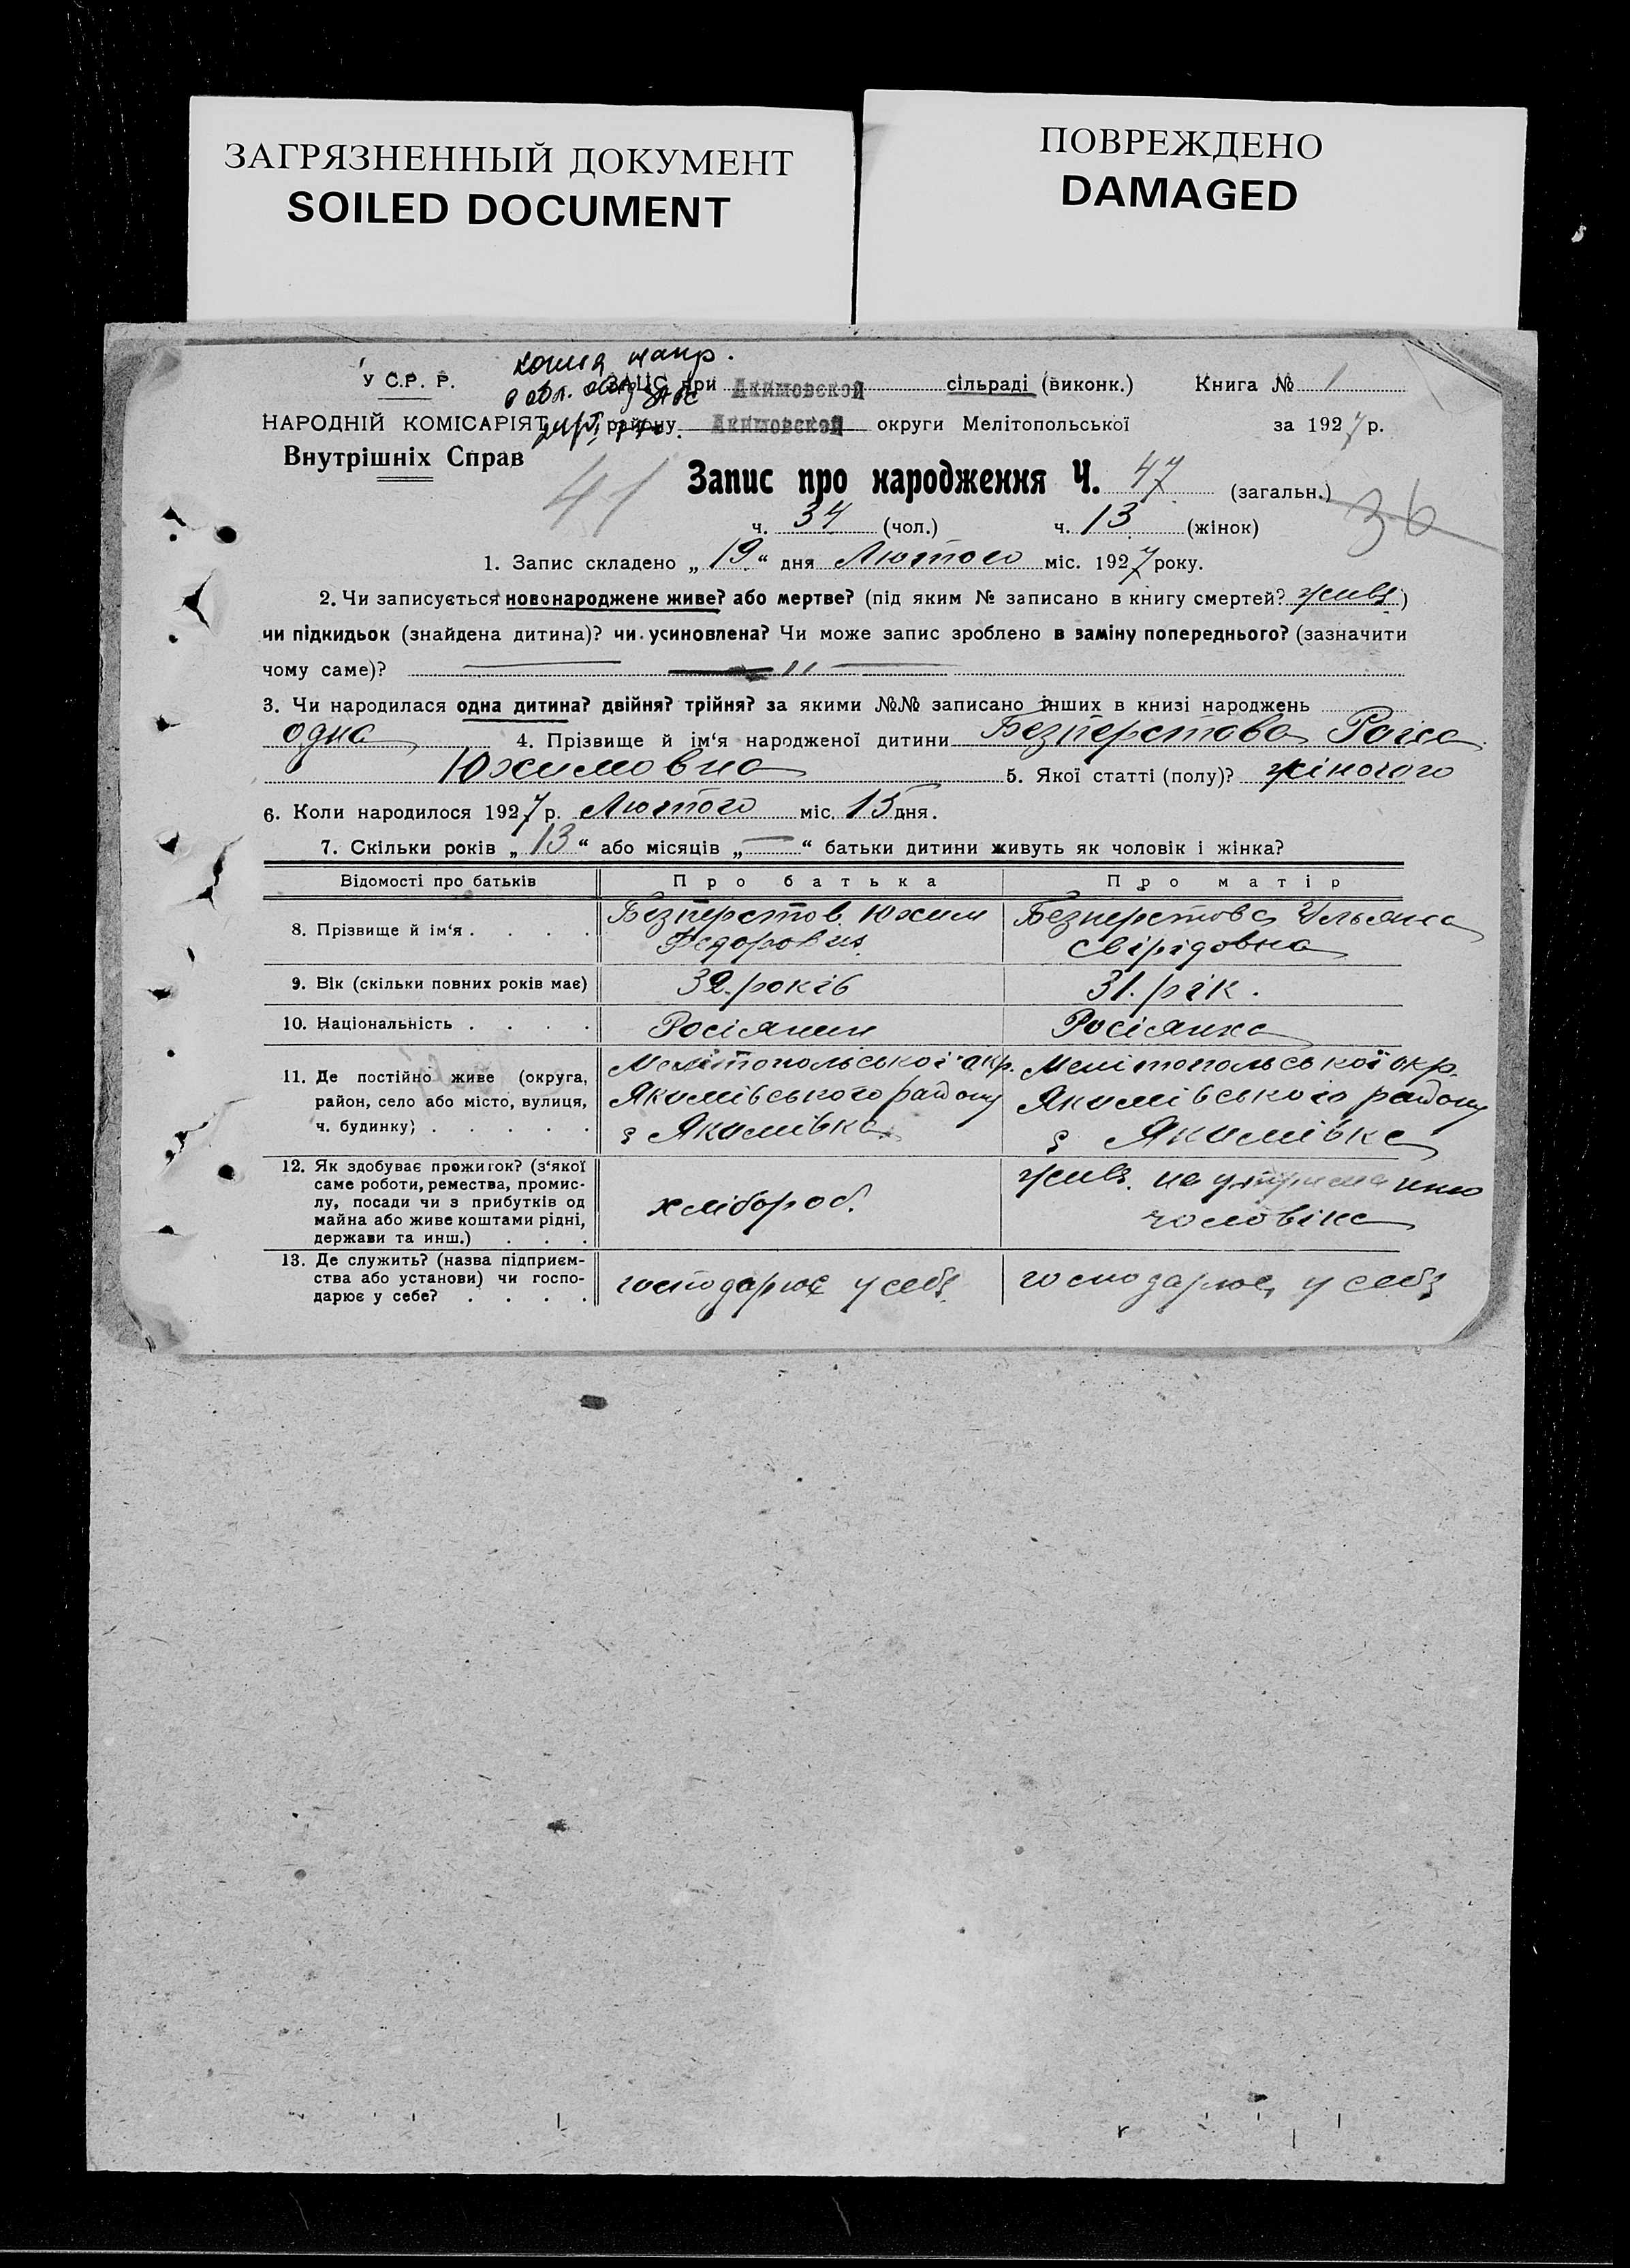 ЗАГРЯЗНЕННЫЙ ДОКУМЕНТ
SOILED DOCUMENT
ПОВРЕЖДЕНО
DAMAGED
копия напр.
в обл. ЗАГС
У С.Р. Р.
ЗАЦС при Якимовской сільраді (виконк.) Книга № 1
НАРОДНІЙ КОМІСАРІЯТ району Якимовской округи Мелітопольської за 1927 р.
Внутрішніх Справ
41 Запис про народження Ч. 47 (загальн.) 36
ч. 34 (чол.) ч. 13 (жінок)
1. Запис складено „19“ дня Лютого міс. 1927 року.
2. Чи записується новонароджене живе? або мертве? (під яким № записано в книгу смертей? живе)
чи підкидьок (знайдена дитина)? чи усиновлена? Чи може запис зроблено в заміну попереднього? (зазначити
чому саме)? — " —
3. Чи народилася одна дитина? двійня? трійня? за якими №№ записано інших в книзі народжень
одна 4. Прізвище й ім‘я народженої дитини Безперстова Раіса
Юхимовна 5. Якої статті (полу)? жіночого
6. Коли народилося 1927 р. Лютого міс. 15 дня.
7. Скільки років „13“ або місяців „—“ батьки дитини живуть як чоловік і жінка?
Відомості про батьків Про батька Про матір
8. Прізвище й ім‘я . . . . Безперстов Юхим Безперстова Ульяна
Федорович Свірідовна
9. Вік (скільки повних років має) 32. років 31. рік.
10. Національність . . . . Росіянин Росіянка
11. Де постійно живе (округа, Мелітопольської окр. Мелітопольської окр.
район, село або місто, вулиця, Якимівського району Якимівського району
ч. будинку) . . . . . с Якимівка с Якимівка
12. Як здобуває прожиток? (з‘якої
саме роботи, ремества, промис- живе на утриманню
лу, посади чи з прибутків од хлібороб. чоловіка
майна або живе коштами рідні,
держави та инш.) . . .
13. Де служить? (назва підприєм-
ства або установи) чи госпо- господарює у себе господарює у себе
дарює у себе? . . . .